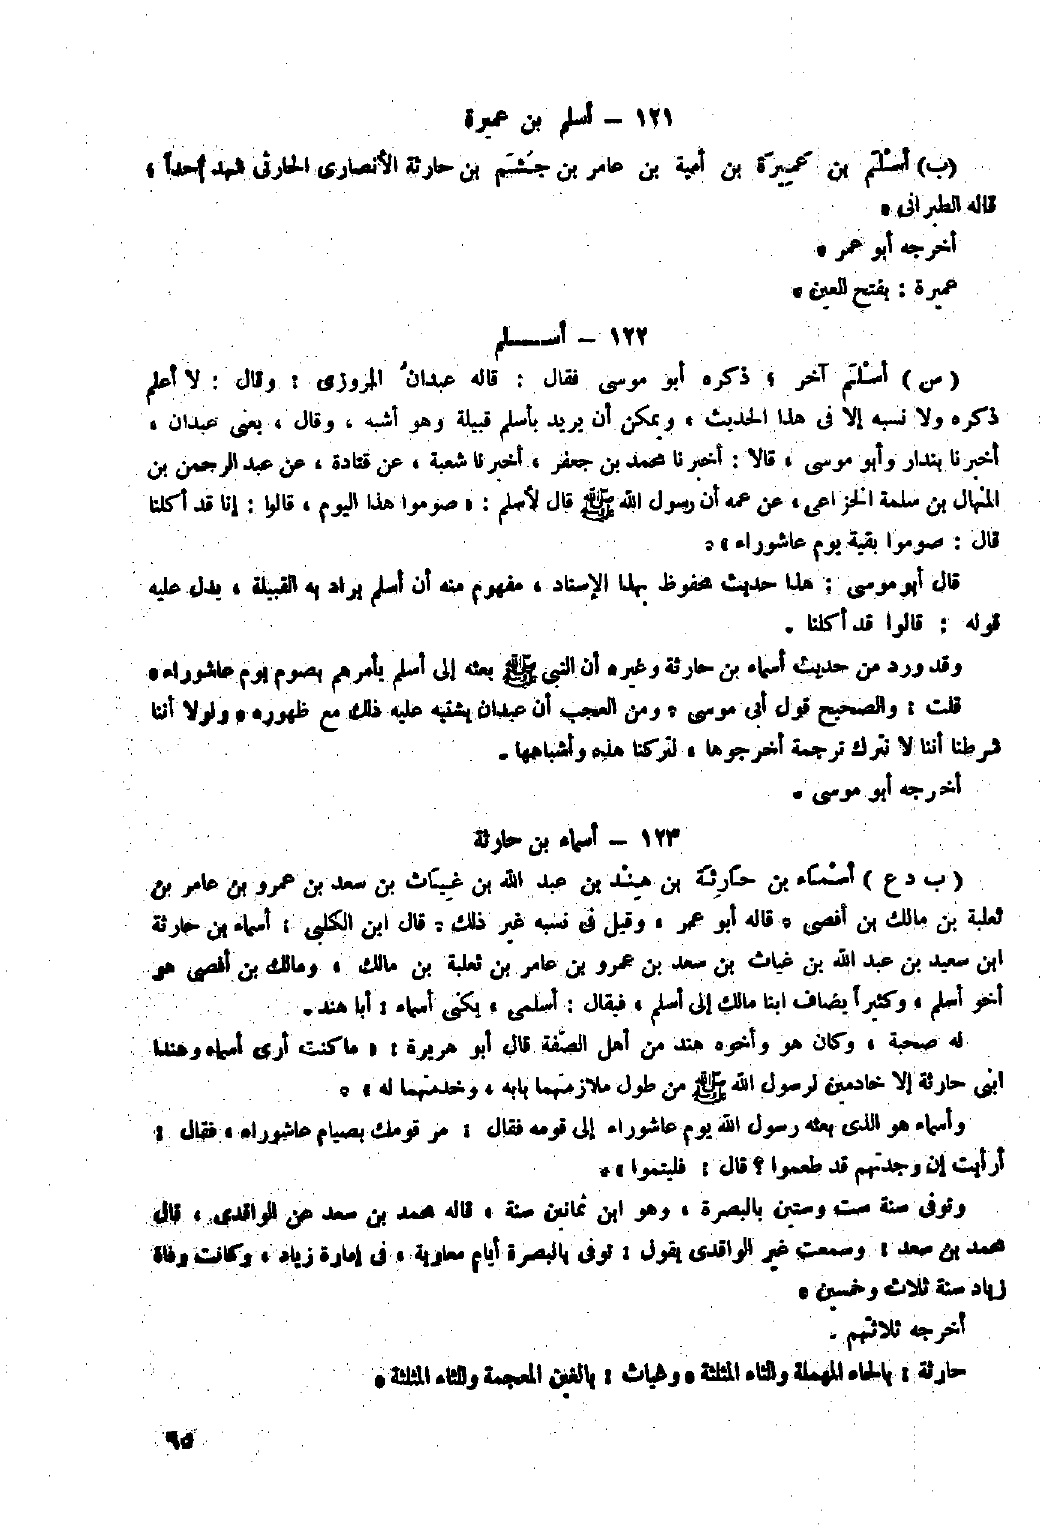 ١٢١ – أسلم بن عميرة
(ب) أَسْلَم بن عَمِيرَة بن أمية بن عامر بن جُشَم بن حارثة الأنصارى الحارثى شهد أحداً ،
قاله الطبرانى .
أخرجه أبو عمر .
عميرة : بفتح العين .
١٢٢ – أســـلم
( س ) أسْلَم آخر ؛ ذكره أبو موسى فقال : قاله عبدانُ المروزى : وقال : لا أعلم
ذكره ولا نسبه إلا فى هذا الحديث ، ويمكن أن يريد بأسلم قبيلة وهو أشبه ، وقال ، يعنى عبدان ،
أخبرنا بندار وأبو موسى ، قالا : أخبرنا محمد بن جعفر ، أخبرنا شعبة ، عن قتادة ، عن عبد الرحمن بن
المنهال بن سلمة الخزاعى ، عن عمه أن رسول الله ﷺ قال لأسلم : « صوموا هذا اليوم ، قالوا : إنا قد أكلنا
قال : صوموا بقية يوم عاشوراء » .
قال أبو موسى : هذا حديث محفوظ بهذا الإسناد ، مفهوم منه أن أسلم يراد به القبيلة ، يدل عليه
قوله : قالوا قد أكلنا .
وقد ورد من حديث أسماء بن حارثة وغيره أن النبى ﷺ بعثه إلى أسلم يأمرهم بصوم يوم عاشوراء .
قلت : والصحيح قول أبى موسى . ومن العجب أن عبدان يشتبه عليه ذلك مع ظهوره . ولولا أننا
شرطنا أننا لا نترك ترجمة أخرجوها ، لتركنا هذه وأشباهها .
أخرجه أبو موسى .
١٢٣ – أسماء بن حارثة
( ب د ع ) أسْمَاء بن حَارِثَة بن هِنْد بن عبد الله بن غِيَاث بن سعد بن عمرو بن عامر بن
ثعلبة بن مالك بن أفصى . قاله أبو عمر ، وقيل فى نسبه غير ذلك . قال ابن الكلبى : أسماء بن حارثة
ابن سعيد بن عبد الله بن غياث بن سعد بن عمرو بن عامر بن ثعلبة بن مالك ، ومالك بن أفصى هو
أخو أسلم ، وكثيراً يضاف ابنا مالك إلى أسلم ، فيقال : أسلمى ، يكنى أسماء : أبا هند .
له صحبة ، وكان هو وأخوه هند من أهل الصُّفة قال أبو هريرة : « ما كنت أرى أسماء وهندا
ابنى حارثة إلا خادمين لرسول الله ﷺ من طول ملازمتهما بابه ، وخدمتهما له » .
وأسماء هو الذى بعثه رسول الله يوم عاشوراء إلى قومه فقال : مر قومك بصيام عاشوراء ، فقال :
أرأيت إن وجدتهم قد طعموا ؟ قال : فليتموا » .
وتوفى سنة ست وستين بالبصرة ، وهو ابن ثمانين سنة ، قاله محمد بن سعد عن الواقدى ، قال
محمد بن سعد : وسمعت غير الواقدى يقول : توفى بالبصرة أيام معاوية ، فى إمارة زياد ، وكانت وفاة
زياد سنة ثلاث وخمسين .
أخرجه ثلاثتهم .
حارثة : بالحاء المهملة والثاء المثلثة . وغياث : بالغين المعجمة والثاء المثلثة .
٩٥